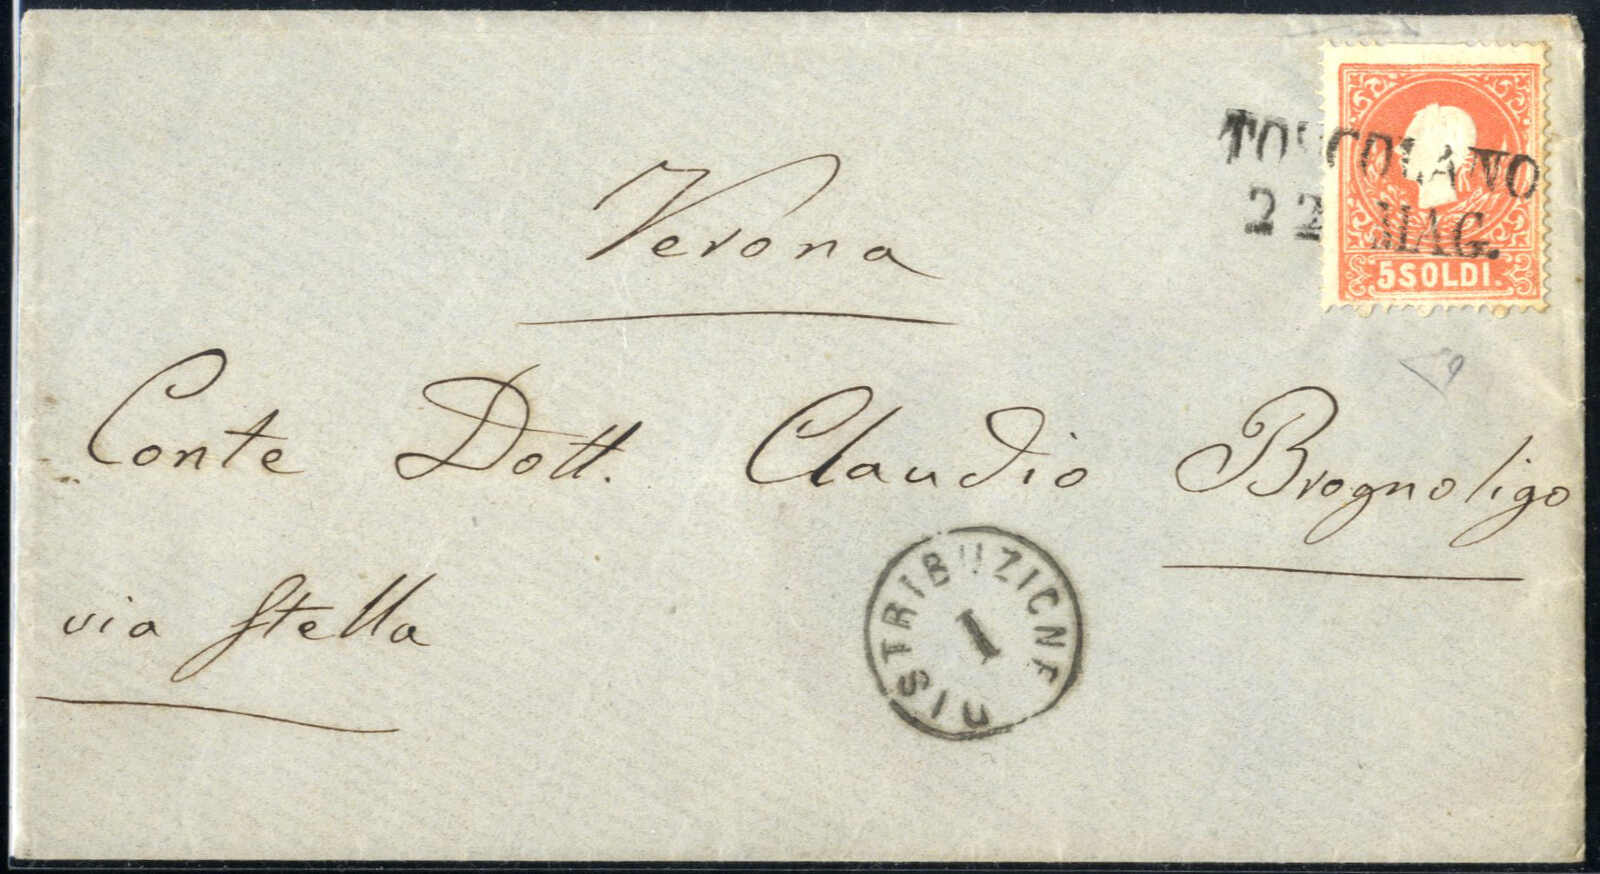 TOSCOLANO
22 MAG.
5 SOLDI.
Verona
Conte Dott. Claudio Brognoligo
via Stella
DISTRIBUZIONE
1